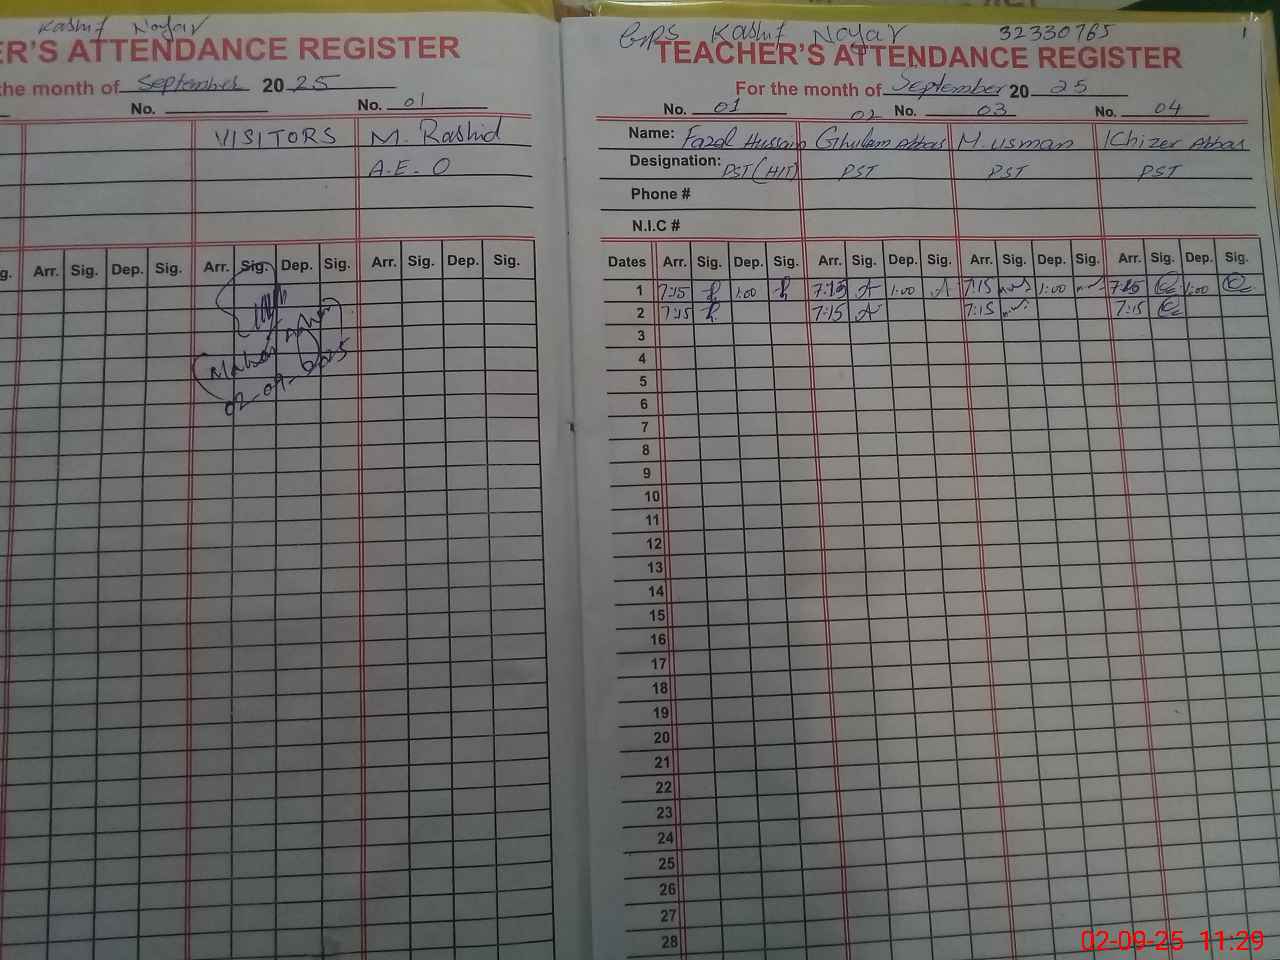 Kashif Nojar
ER'S ATTENDANCE REGISTER
the month of September 20 25
No. No. 01
VISITORS M. Rashid
A.E.O
g. Arr. Sig. Dep. Sig. Arr. Sig. Dep. Sig. Arr. Sig. Dep. Sig.
02-09-2025
GPS Kashif Nojar 32330765 1
TEACHER'S ATTENDANCE REGISTER
For the month of September 20 25
No. 01 02 No. 03 No. 04
Name: Fazal Hussain Ghulam Abbas M. usman Khizer Abbas
Designation: PST (HT) PST PST PST
Phone #
N.I.C #
Dates Arr. Sig. Dep. Sig. Arr. Sig. Dep. Sig. Arr. Sig. Dep. Sig. Arr. Sig. Dep. Sig.
1 7:15 1:00 7:15 A 1:00 A 7:15 1:00 7:15 1:00
2 7:15 7:15 A 7:15 7:15
3
4
5
6
7
8
9
10
11
12
13
14
15
16
17
18
19
20
21
22
23
24
25
26
27
28
02-09-25 11:29